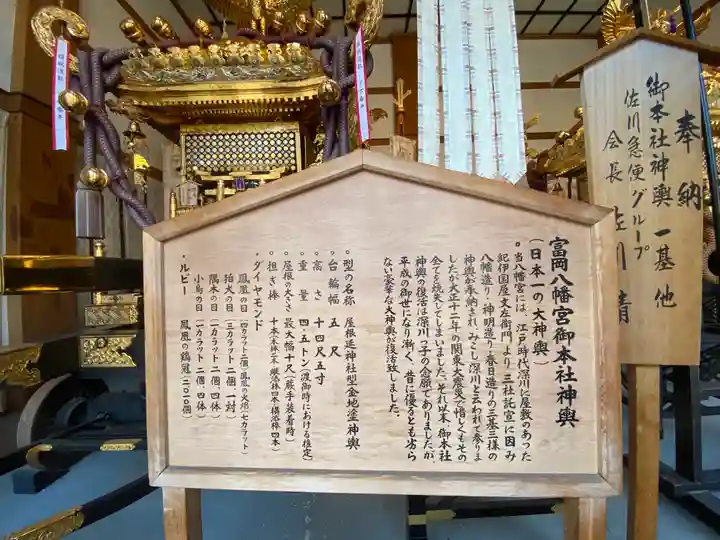 奉納
御本社神輿一基他
佐川急便グループ
会長 佐川清
富岡八幡宮御本社神輿
(日本一の大神輿)
。当八幡宮には、江戸時代深川に屋敷のあった
紀伊国屋文左衛門より三社託宣に因み
八幡造り・神明造り・春日造りの三基三様の
神輿が奉納され、みこし深川と云われて参りま
したが大正十二年の関東大震災で惜しくもその
全てを焼失してしまいました。それ以来、御本社
神輿の復活は深川っ子の念願でありましたが、
平成の御世になり漸く、昔に優るとも劣ら
ない豪華な大神輿が復活致しました。
・型の名称 屋根延神社型金地塗神輿
・台輪幅 五尺
・高さ 十四尺五寸
・重量 四・五トン(渡御時における推定)
・屋根の大きさ 最大幅十尺(蕨手装着時)
・担ぎ棒 十本(本体二本、縦添棒四本、横添棒四本)
・ダイヤモンド
鳳凰の目(四カラット二個、鳳凰の火焔七カラット)
狛犬の目(三カラット二個、一対)
隅木の目(一カラット二個、四体)
小鳥の目(一カラット二個、四体)
・ルビー 鳳凰の鶏冠(二〇一〇個)